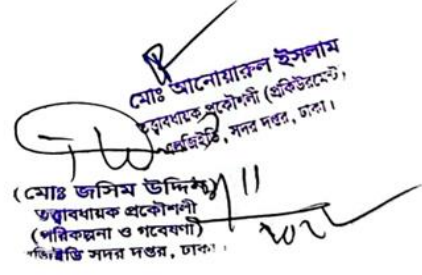 মোঃ আনোয়ারুল ইসলাম
তত্ত্বাবধায়ক প্রকৌশলী (প্রকিউরমেন্ট)
এলজিইডি, সদর দপ্তর, ঢাকা।
(মোঃ জসিম উদ্দিন)
তত্ত্বাবধায়ক প্রকৌশলী
(পরিকল্পনা ও গবেষণা)
এলজিইডি সদর দপ্তর, ঢাকা।